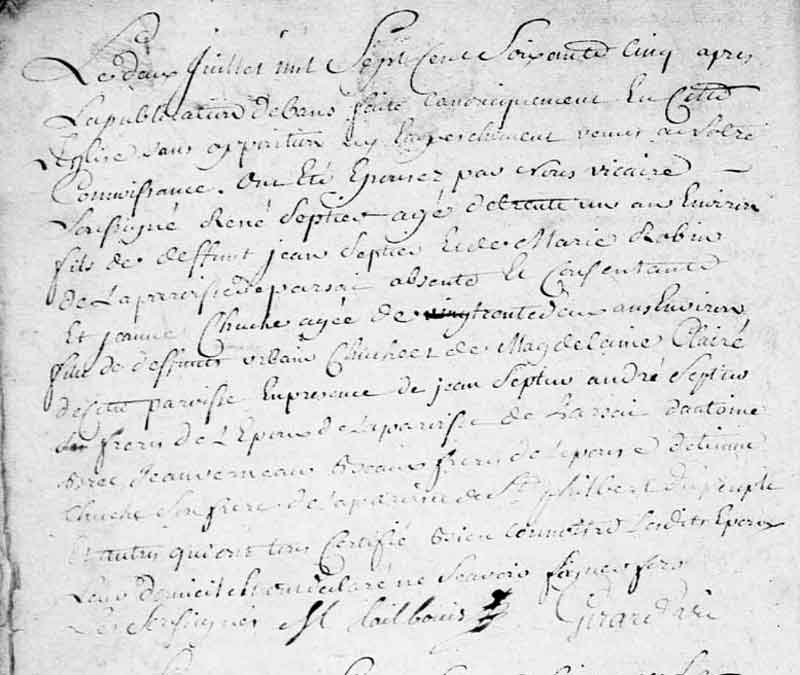 Le deux Juillet mil Sept Cent Soixante Cinq apres
La publication de bans faite Canoniquement En Cette
Eglise sans opposition ny Empeschement venus a notre
Connoissance. Ont Eté Epousez par Nous vicaire
Soussigné René Septier agé de trente un an Environ
fils de deffunt jean Septier et de Marie Robin
de La paroisse de parsai absente Et Consentante
Et jeanne Chuche agée de trente deux ans Environ
fille de deffunts urbain Chuche et de Magdelaine Clairé
de Cette paroisse En presence de jean Septier andré Septier
freres de L'Epoux de La paroisse de parsai d'antoine
jean verneau Beaux freres de L'epouse detienne
Chuche Son frere de La paroisse de St philbert du peuple
Et autres qui ont tous Certifié Bien Connoitre Lesdits Epoux
Leur domicile Et ont declaré ne Scavoir Signer fors
Les Soussignés